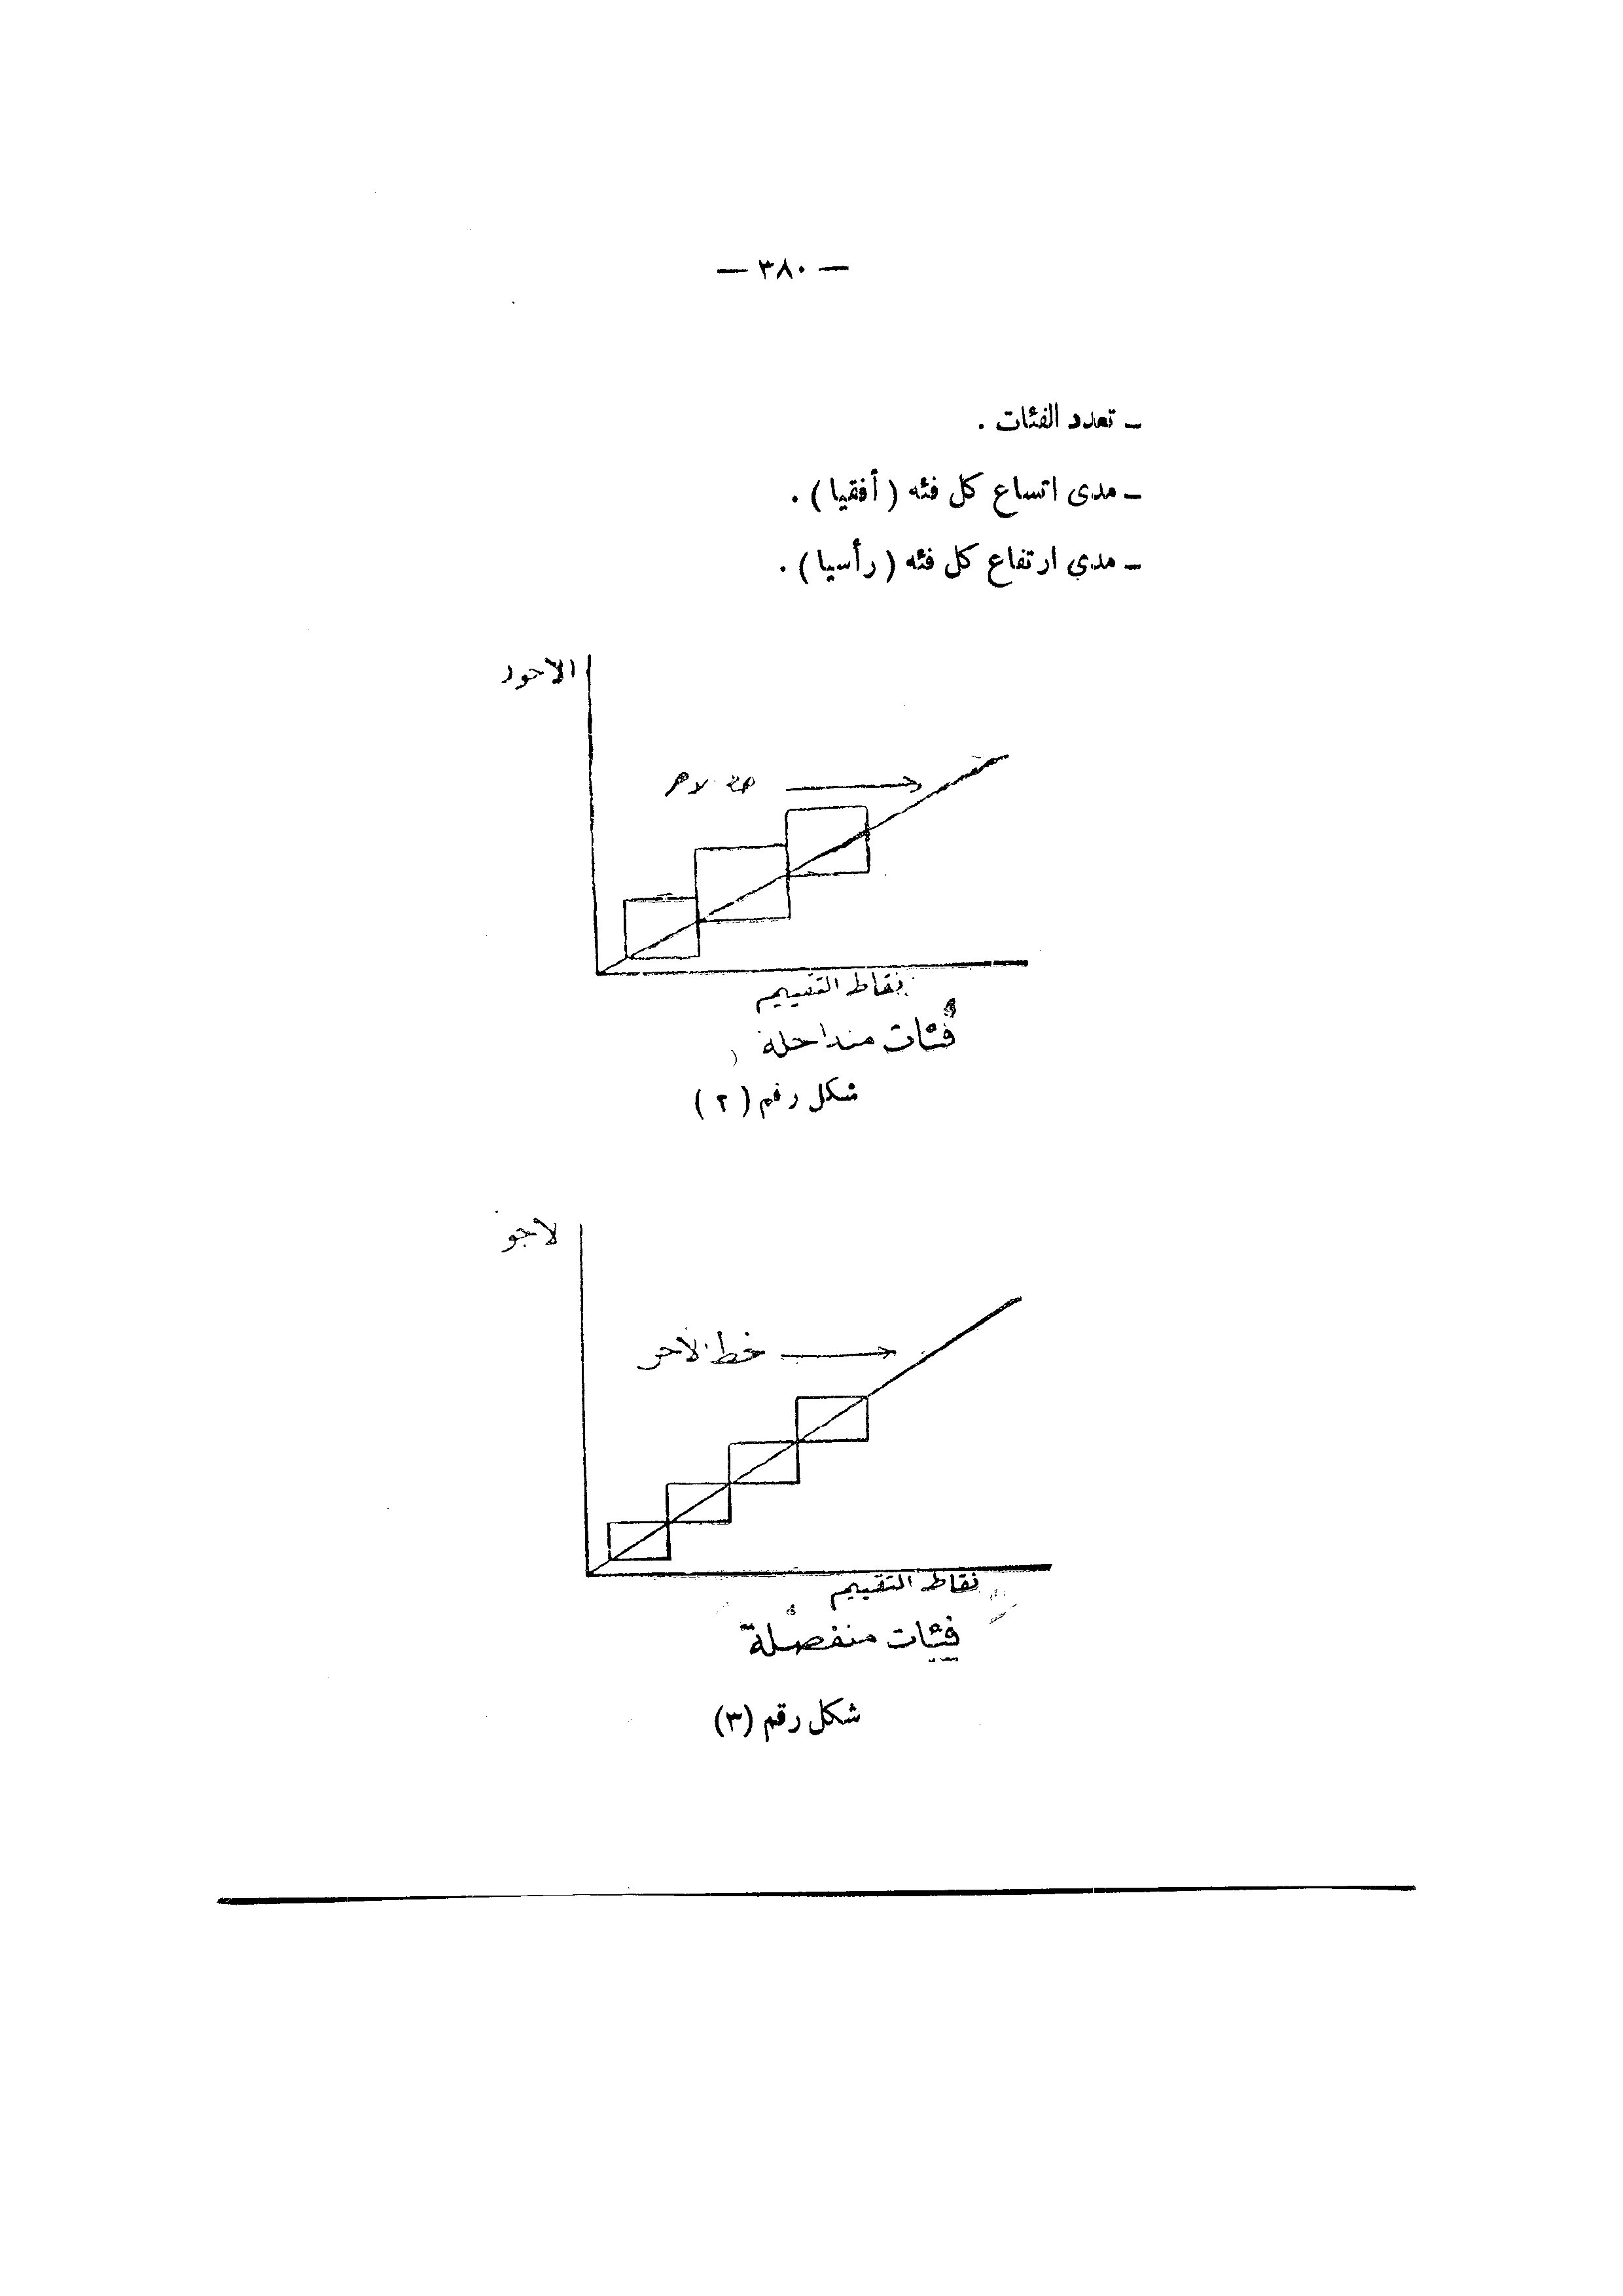 — ٣٨٠ —
ـ تعدد الفئات .
ـ مدى اتساع كل فئه ( أفقيا ) .
ـ مدى ارتفاع كل فئه ( رأسيا ) .
الاجور
نقاط التقييم
فئات متداخلة
شكل رقم ( ٢ )
لاجو
خط الاجر
نقاط التقييم
فئات منفصلة
شكل رقم (٣)